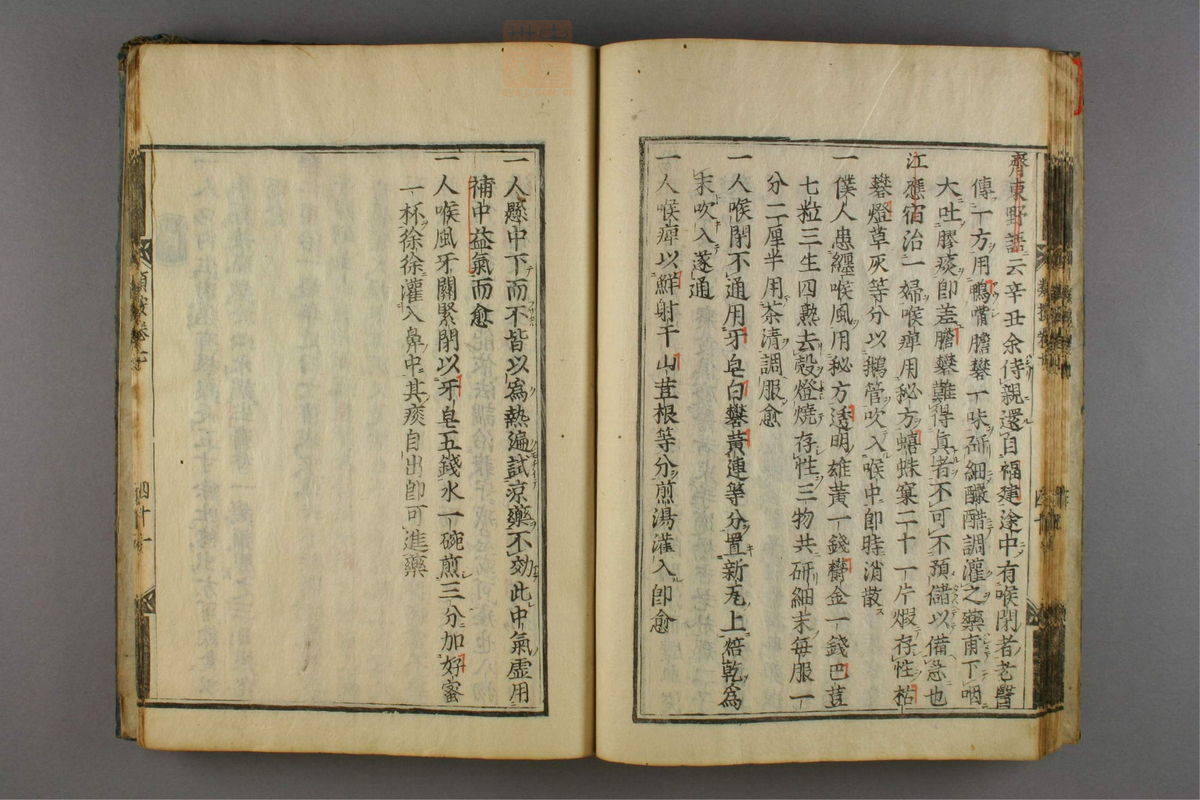 齊東野語云辛丑余侍親還自福建途中有喉閉者老醫
傳一方用鴨嘴膽礬一味硏細釅醋調灌之藥甫下咽
大吐膠痰即差膽礬難得真者不可不預儲以備急也
江應宿治一婦喉痺用秘方蟢蛛窠二十一片煆存性枯
礬燈草灰等分以鵝管吹入喉中即時消散
一僕人患纏喉風用秘方透明雄黃一錢欝金一錢巴荳
七粒三生四熟去殼燈燒存性三物共研細末每服一
分二厘半用茶清調服愈
一人喉閉不通用牙皂白礬黃連等分置新瓦上焙乾為
末吹入遂通
一人喉痺以鮮射干山荳根等分煎湯灌入即愈
一人懸中下而不皆以為熱遍試凉藥不効此中氣虛用
補中益氣而愈
一人喉風牙關緊閉以牙皂五錢水一碗煎三分加好蜜
一杯徐徐灌入鼻中其痰自出即可進藥
類案卷七
四十一